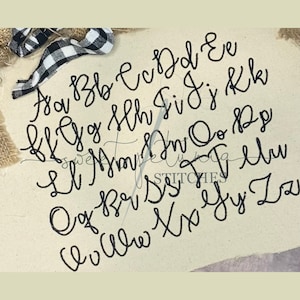 Aa Bb Cc Dd Ee
Ff Gg Hh Ii Jj Kk
Ll Mm Nn Oo Pp
Qq Rr Ss Tt Uu
Vv Ww Xx Yy Zz
sweet
STITCHES